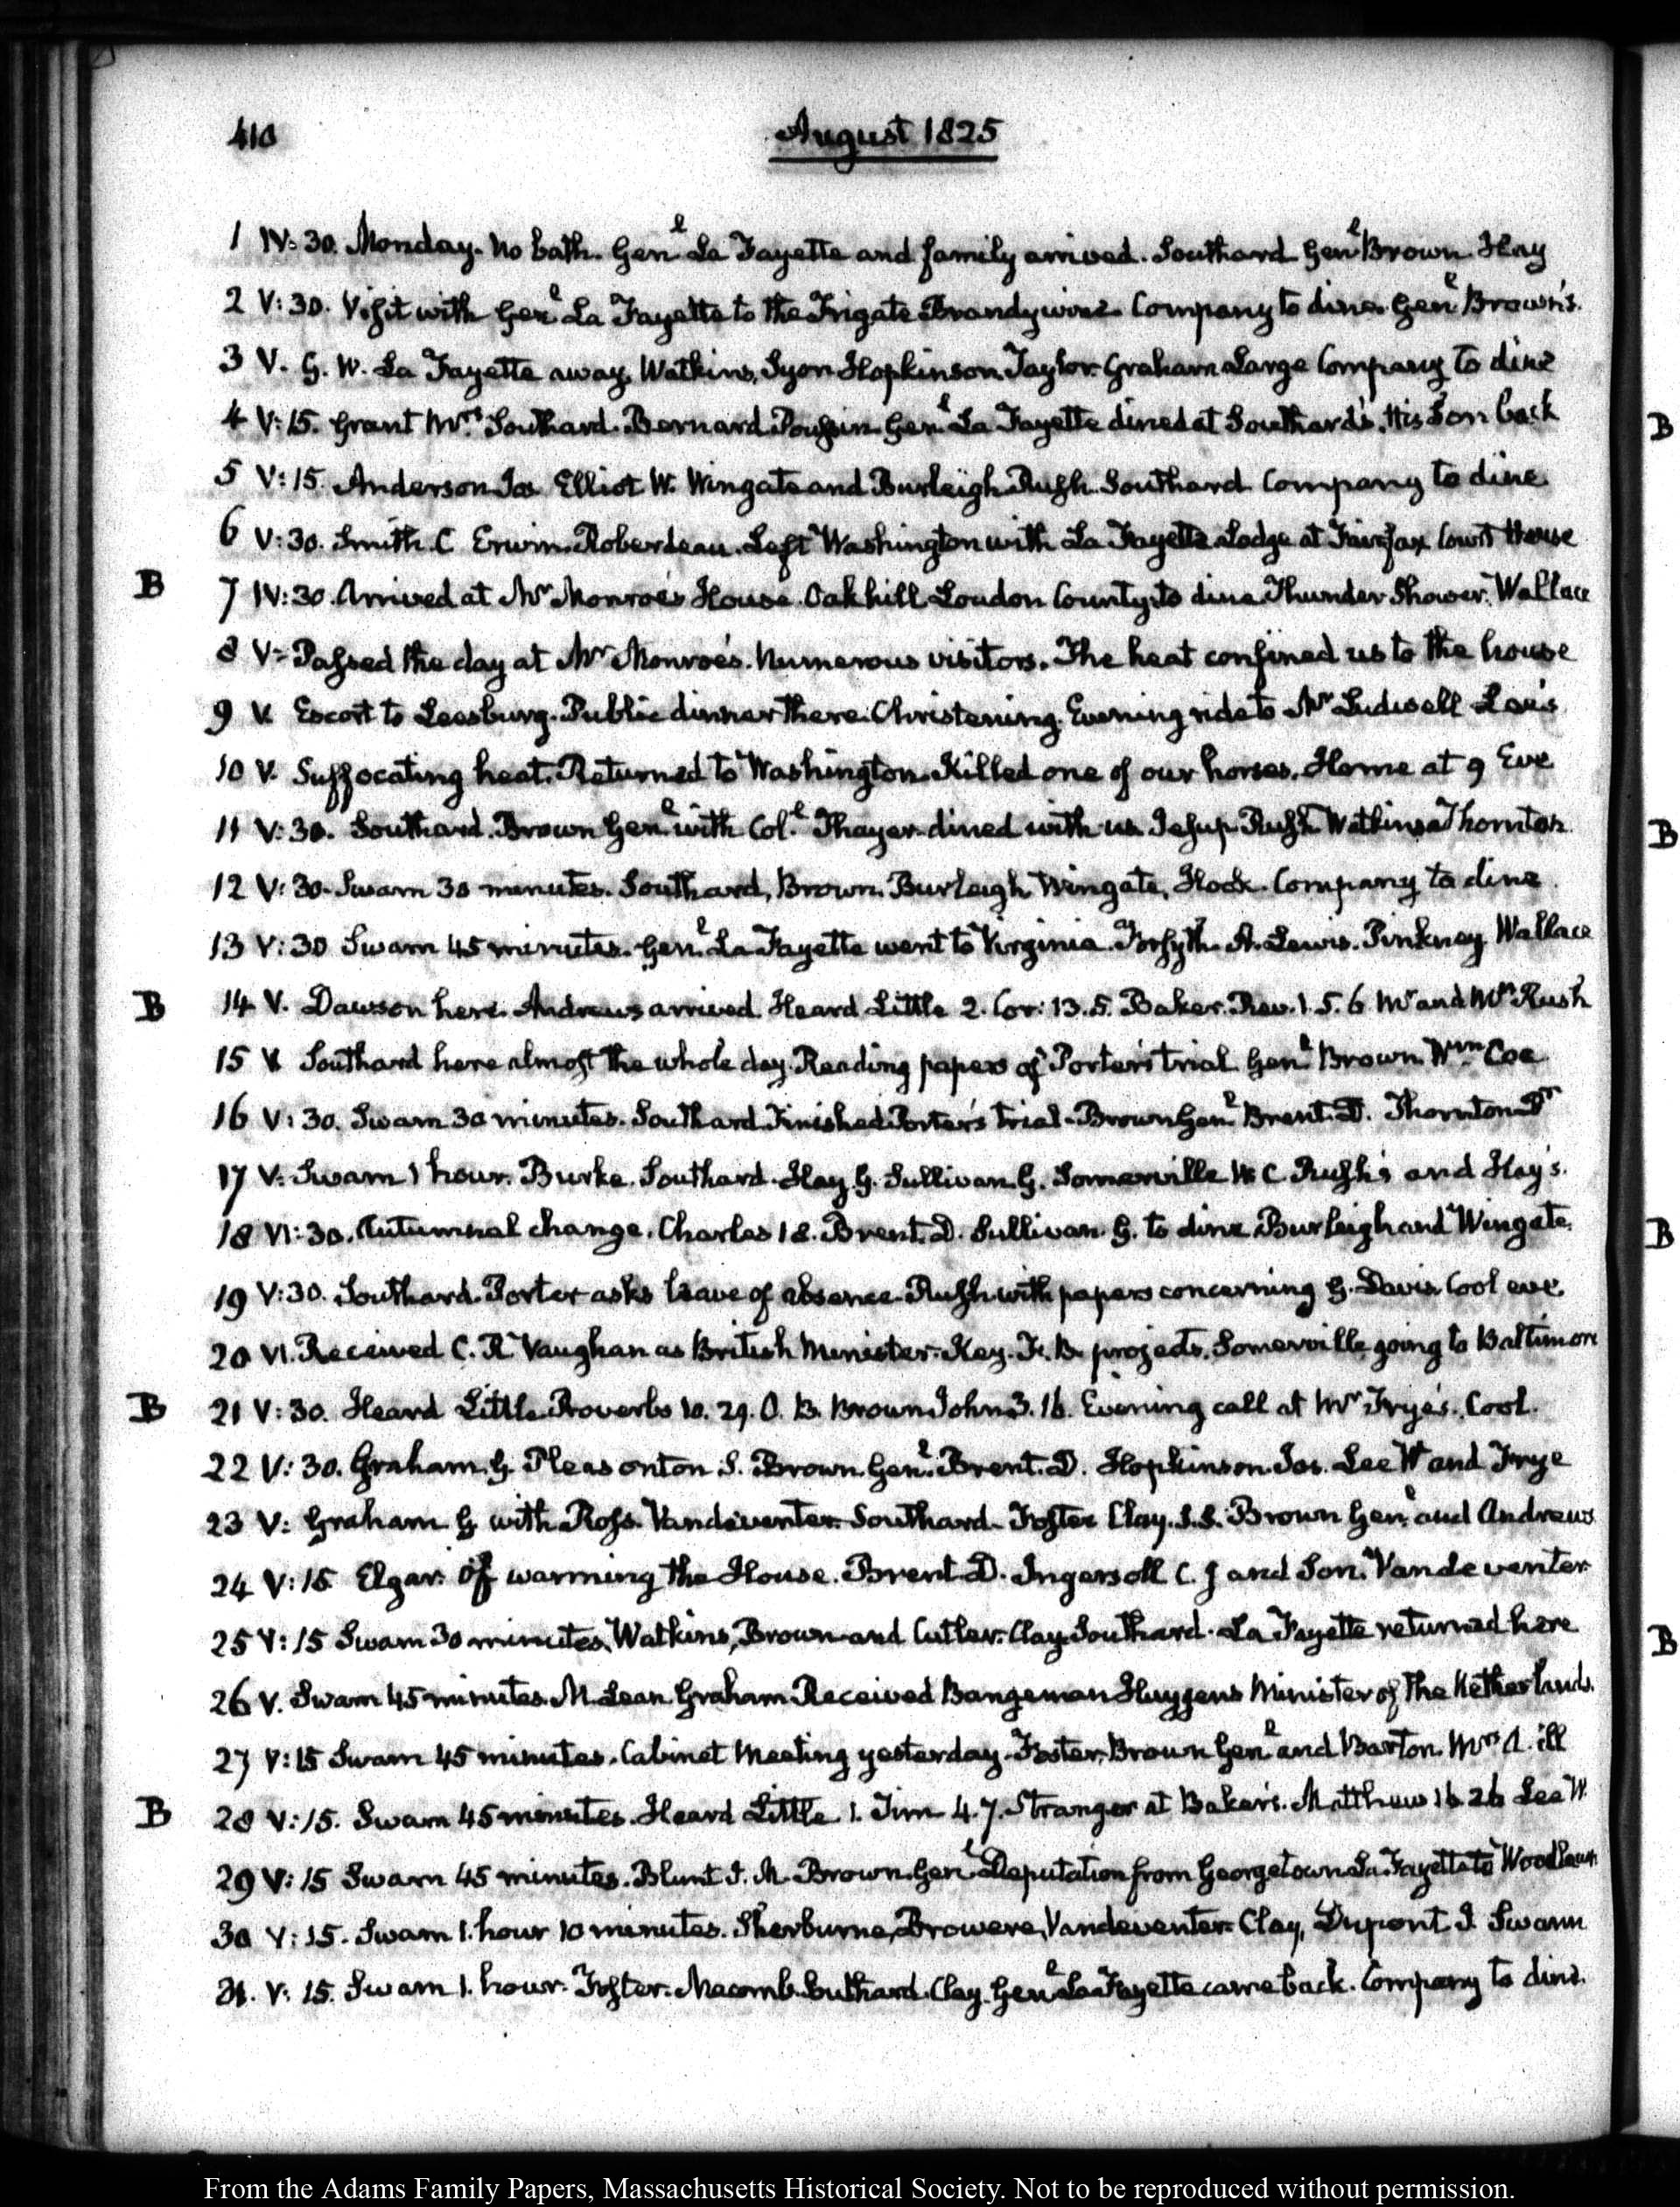 410
August 1825
1 IV:30. Monday. No bath. Genl. La Fayette and family arrived. Southard Genl Brown. Hay
2 V:30. Visit with Genl La Fayette to the Frigate Brandywine. Company to dine. Genl Brown's.
3 V. G. W. La Fayette away, Watkins, Lyon Hopkinson. Taylor. Graham. Large Company to dine
4 V:15. Grant Mrs. Southard. Bernard. Poussin. Genl. La Fayette dined at Southard's. His Son back
5 V:15. Anderson Jos Elliot W. Wingate and Burleigh. Rush. Southard Company to dine
6 V:30. Smith. C Erwin. Roberdeau. Left Washington with La Fayette. Lodge at Fairfax Court House
B 7 IV:30. Arrived at Mr Monroe's House. Oakhill Loudon County, to dine. Thunder Shower. Wallace
8 V. Passed the day at Mr Monroe's. Numerous visitors. The heat confined us to the house
9 V. Escort to Leesburg. Public dinner there. Christening. Evening ride to Mr Ludwell Lee's
10 V. Suffocating heat. Returned to Washington. Killed one of our horses. Home at 9 Eve
11 V:30. Southard. Brown Genl with Coll. Thayer dined with us. Jesup Rush Watkins Thornton
12 V:30. Swam 30 minutes. Southard, Brown. Burleigh Wingate, Hook. Company to dine.
13 V:30 Swam 45 minutes. Genl. La Fayette went to Virginia. Forsyth. A. Lewis. Pinkney Wallace
B 14 V. Dawson here. Andrews arrived. Heard Little 2. Cor: 13.5. Baker. Rev. 1. 5. 6 Mr and Mrs Rush
15 V. Southard here almost the whole day. Reading papers of Porter's trial Genl Brown. Wm Coe
16 V:30. Swam 30 minutes. Southard. Finished Porter's trial. Brown Genl. Brent. D. Thornton Dr
17 V: Swam 1 hour. Burke. Southard. Hay. G. Sullivan. G. Somerville W. C. Rush's and Hay's.
18 VI:30. Autumnal change. Charles 18. Brent. D. Sullivan. G. to dine Burleigh and Wingate.
19 V:30. Southard. Porter asks leave of absence. Rush with papers concerning G. Davis. Cool eve.
20 VI. Received C. R. Vaughan as British Minister. Key. F. B. projects. Somerville going to Baltimore
B 21 V:30. Heard Little. Proverbs 10. 29. O. B. Brown John 3. 16. Evening call at Mr Frye's. Cool.
22 V:30. Graham. G. Pleasonton S. Brown. Genl. Brent. D. Hopkinson. Jos. Lee W and Frye
23 V: Graham G with Ross. Vandeventer. Southard. Foster Clay. S.S. Brown Genl and Andrews
24 V:15 Elgar. Of warming the House. Brent D. Ingersoll C. J and Son. Vandeventer
25 V:15 Swam 30 minutes, Watkins, Brown and Cutler. Clay. Southard. La Fayette returned here
26 V. Swam 45 minutes. McLean Graham. Received Bangeman Huygens Minister of the Netherlands.
27 V:15 Swam 45 minutes. Cabinet Meeting yesterday. Foster. Brown Genl and Barton. Mrs A. ill
B 28 V:15. Swam 45 minutes. Heard Little 1. Tim 4.7. Stranger at Baker's. Matthew 16. 26 Lee W.
29 V:15 Swam 45 minutes. Blunt J. M. Brown. Genl. Deputation from Georgetown La Fayette to Woodlawn
30 V:15. Swam 1. hour 10 minutes. Sherburne, Browere, Vandeventer. Clay, Dupont I. Swann
31. V:15. Swam 1. hour. Foster. Macomb. Southard. Clay. Genl La Fayette came back. Company to dine.
B
B
B
B
From the Adams Family Papers, Massachusetts Historical Society. Not to be reproduced without permission.